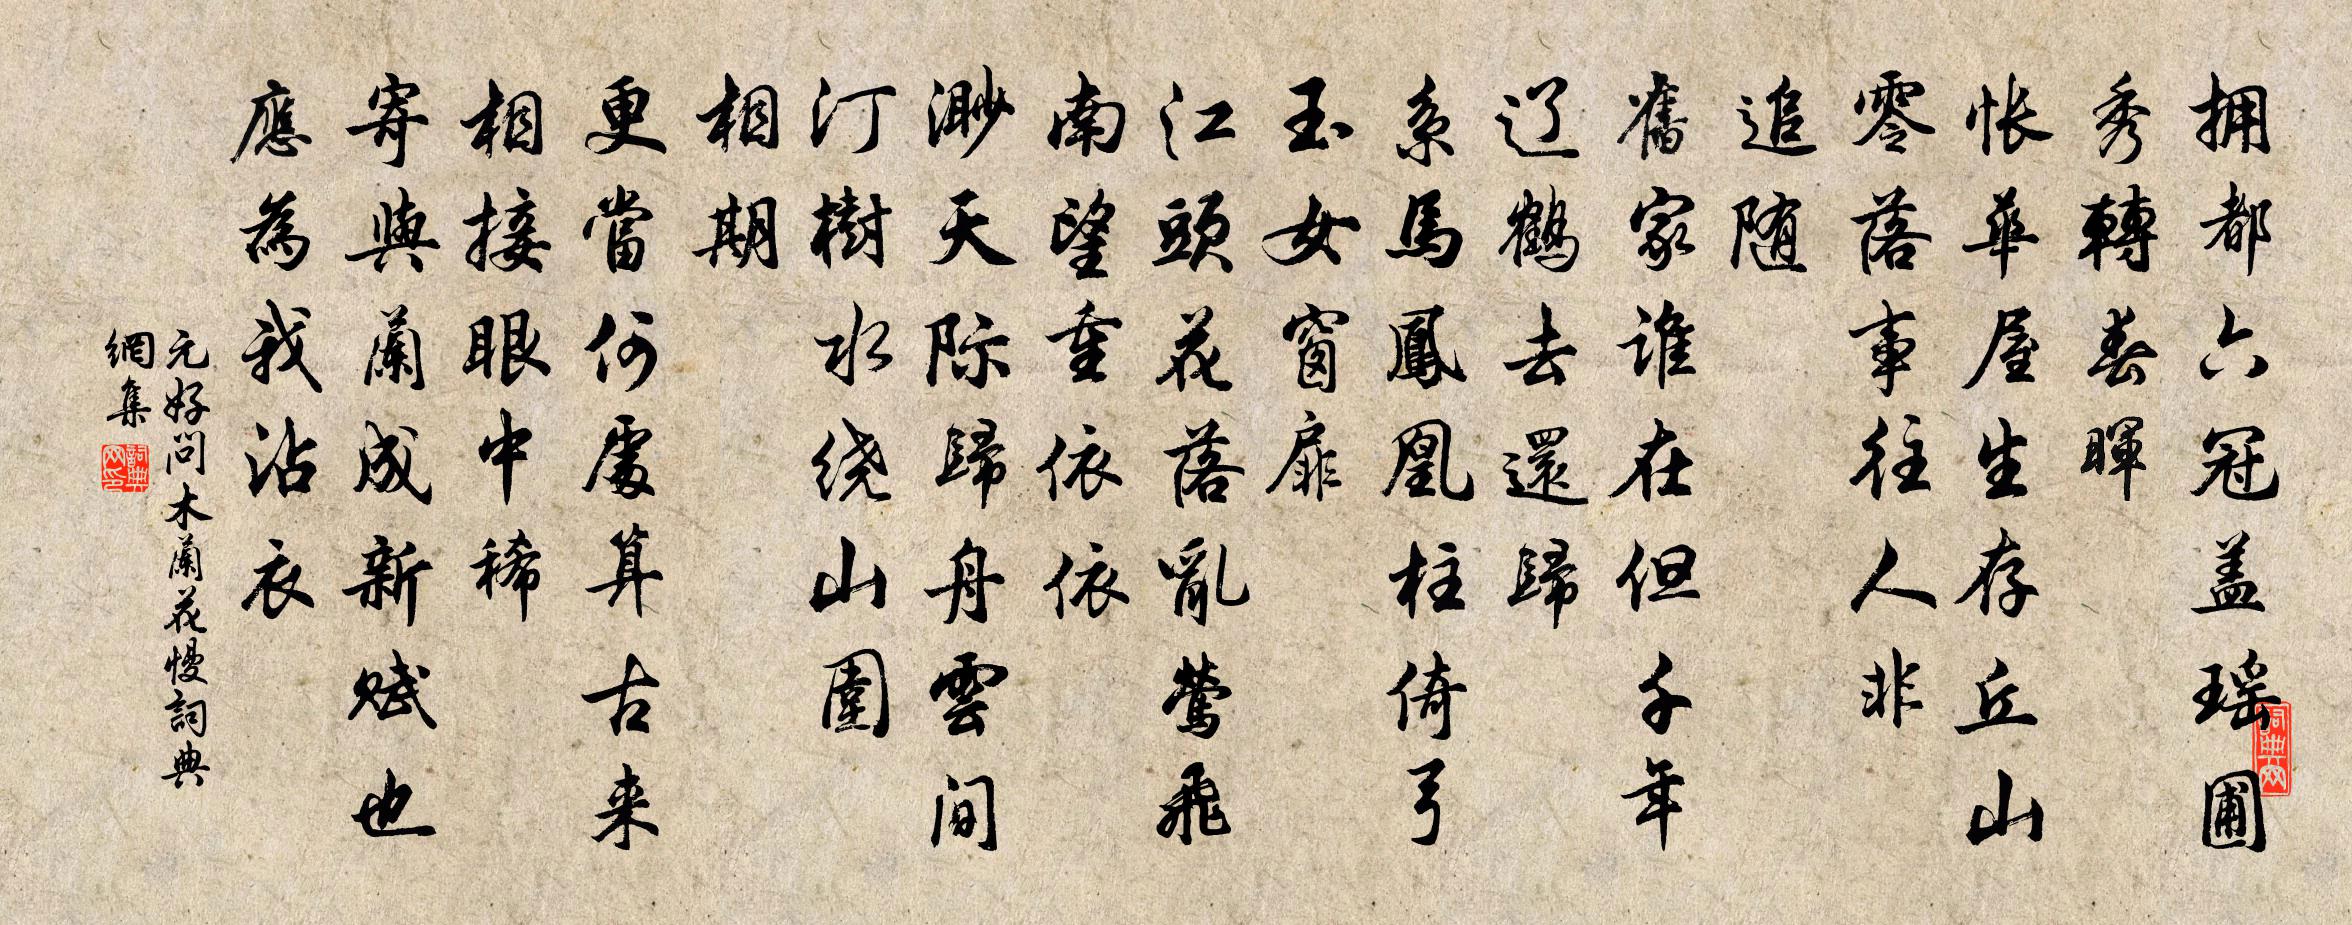 拥都六冠盖瑶圃
秀轉春暉
怅華屋生存丘山
零落事往人非
追随
舊家谁在但千年
辽鹤去還歸
系馬鳳凰柱倚弓
玉女窗扉
江頭花落亂莺飛
南望重依依
渺天际歸舟雲间
汀樹水绕山圍
相期
更當何處算古来
相接眼中稀
寄與蘭成新赋也
應為我沾衣
元好问木蘭花慢詞典
網集
詞典网
詞典网印